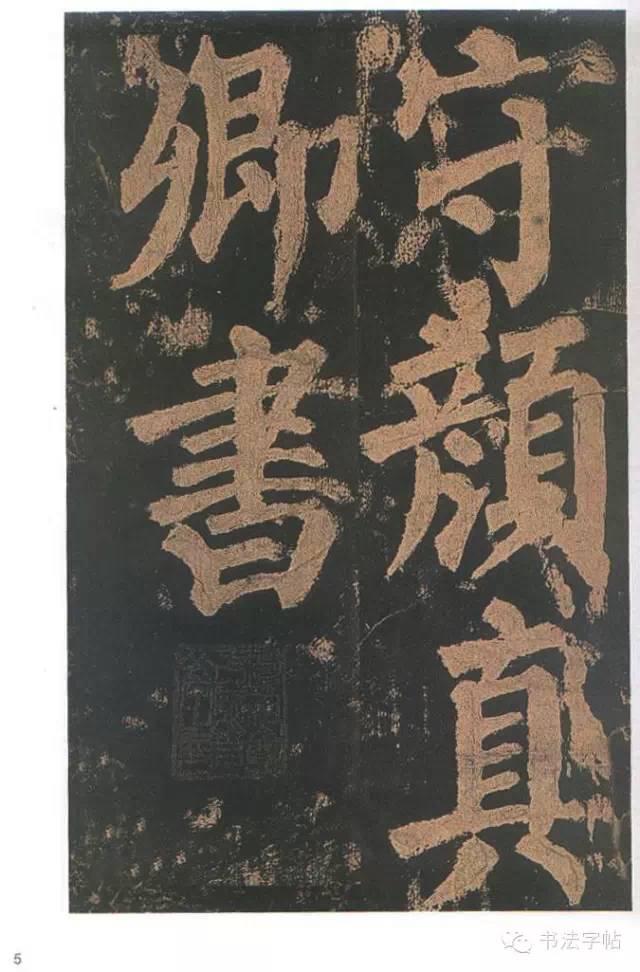 守顏真
卿書
5
书法字帖